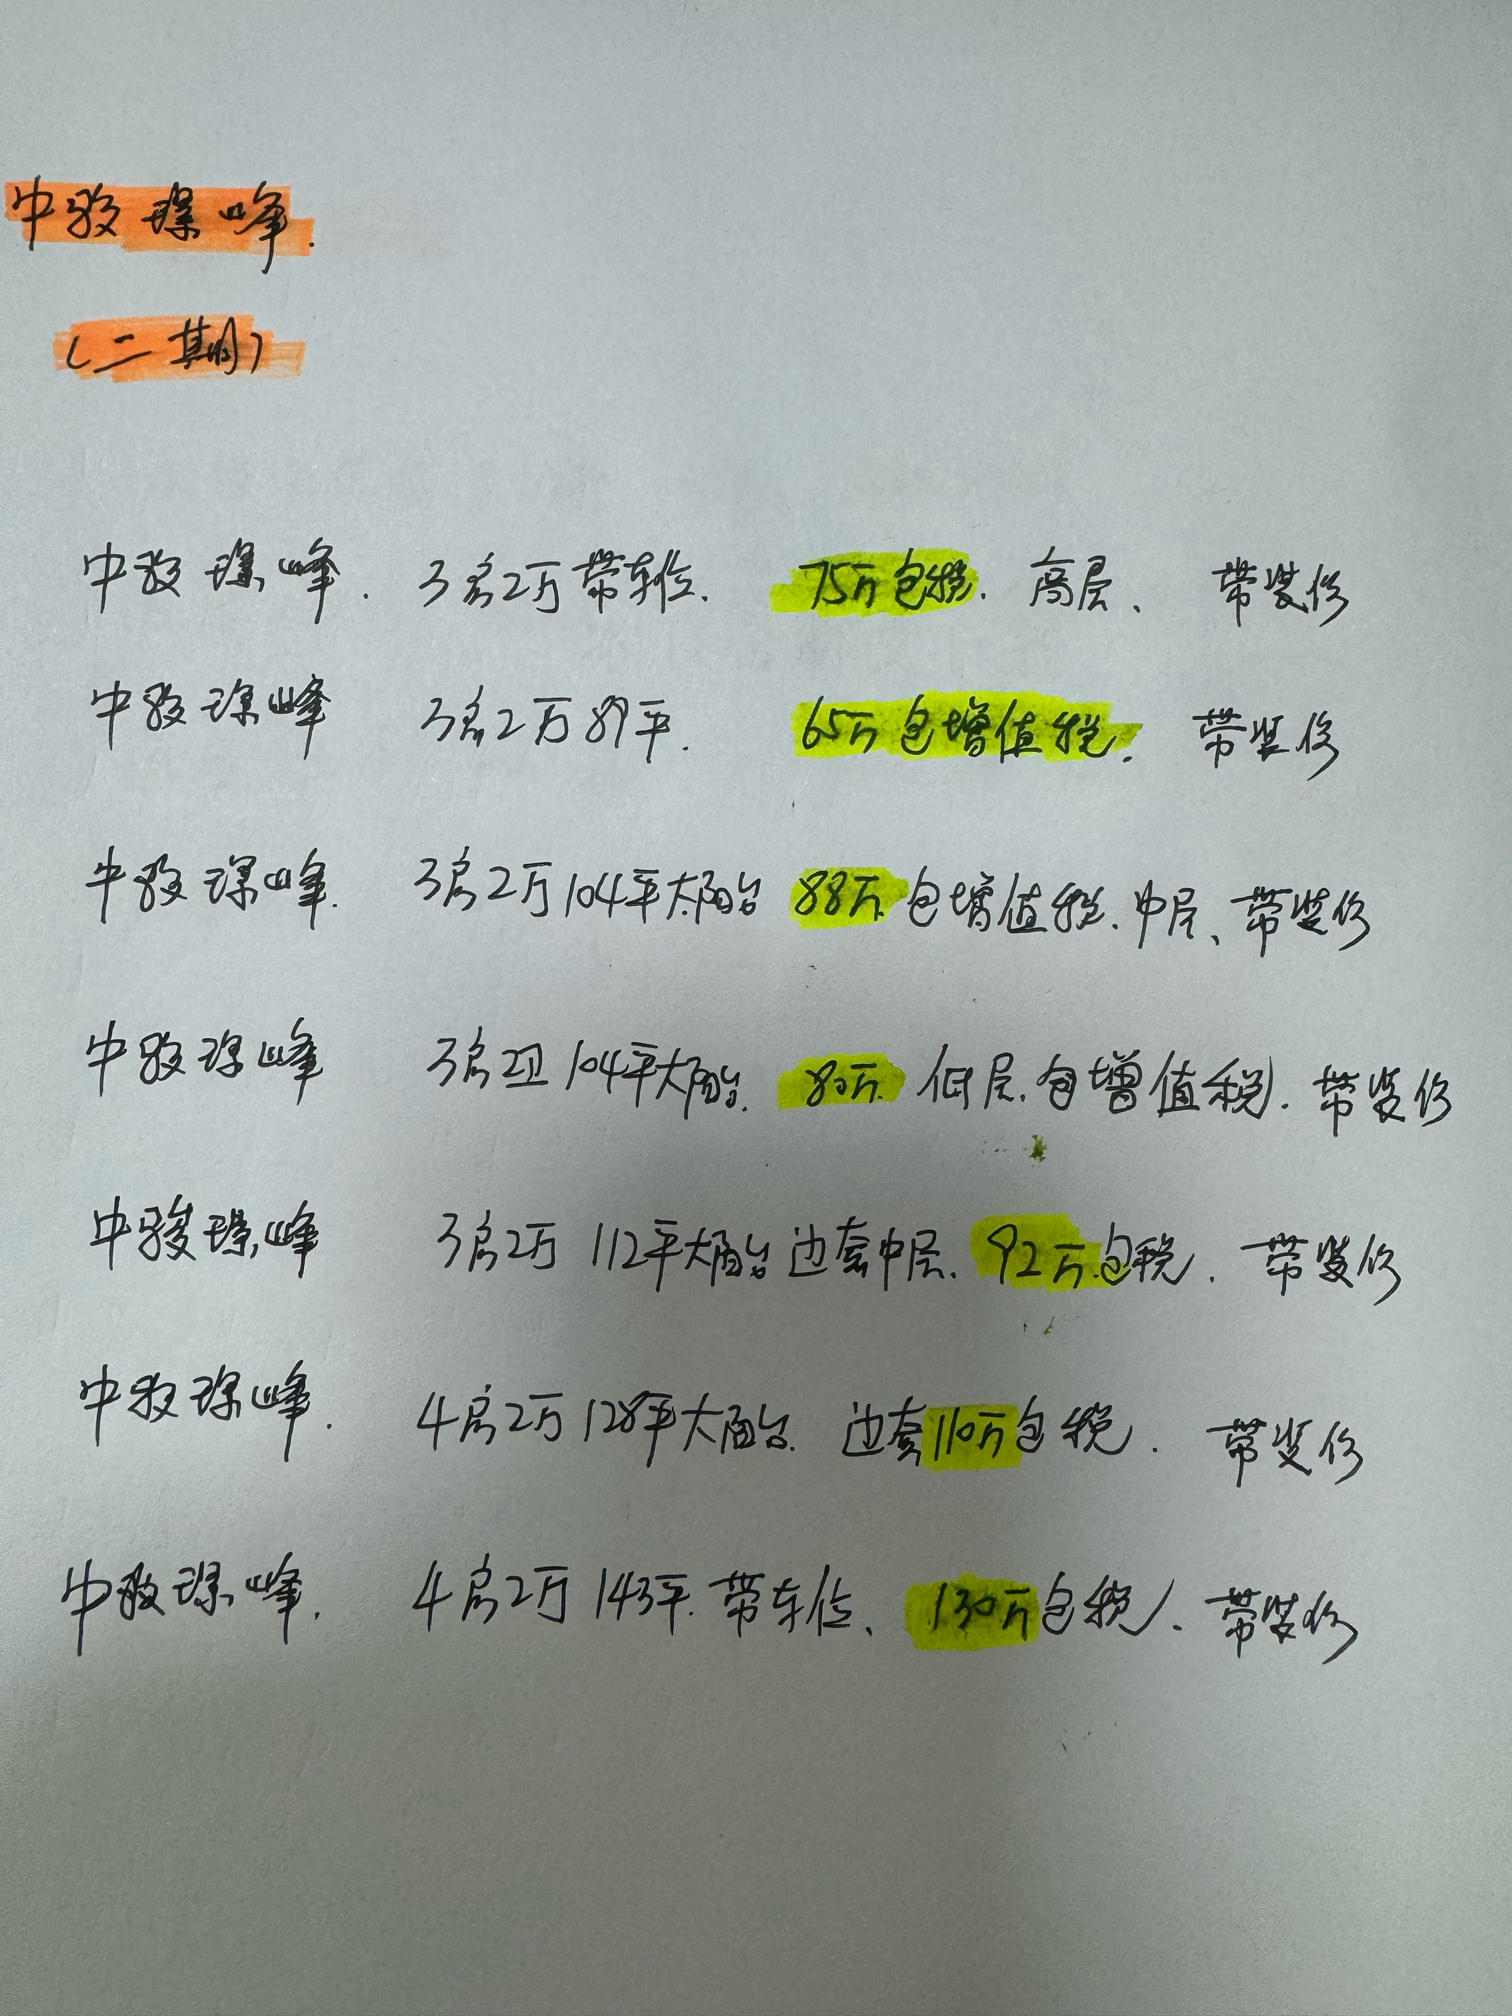 中骏璟峰.
(二期)
中骏璟峰. 3房2卫带车位. 75万包税. 高层、 带装修
中骏璟峰 3房2卫89平. 65万包增值税. 带装修
中骏璟峰. 3房2卫104平大阳台 88万.包增值税.中层、带装修
中骏璟峰 3房2卫104平大阳台. 80万. 低层.包增值税. 带装修
中骏璟峰 3房2卫 112平大阳台 边套中层. 92万.包税. 带装修
中骏璟峰. 4房2卫128平大阳台. 边套110万包税. 带装修
中骏璟峰. 4房2卫143平.带车位、 130万包税. 带装修